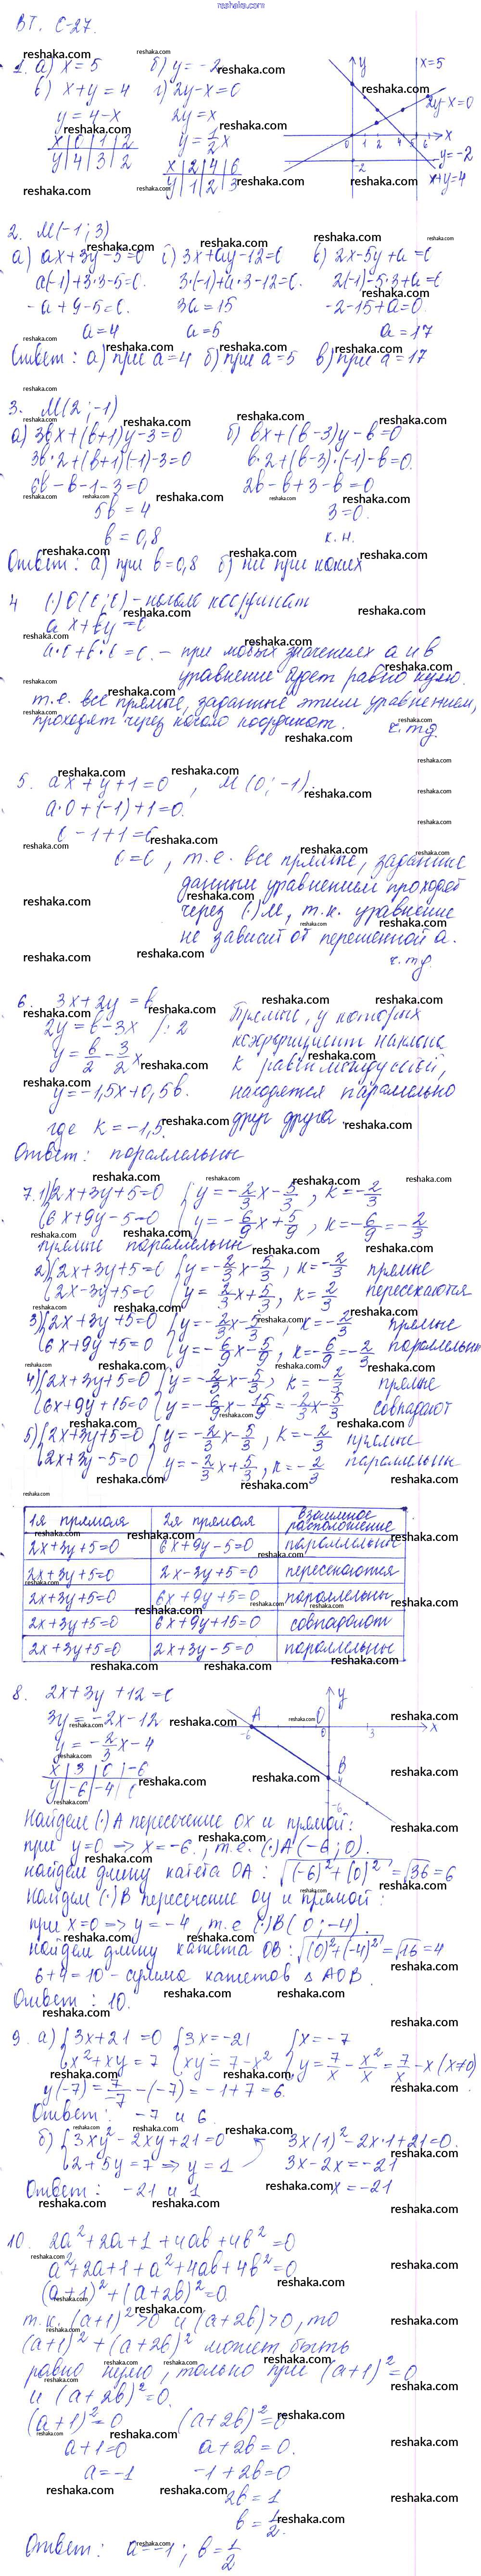 reshaka.com
ВТ. С-27.
1. а) x = 5   б) y = -2
в) x + y = 4   г) 2y - x = 0
y = 4 - x   2y = x
x 0 1 2   y = 1/2 x
y 4 3 2   x 2 4 6
y 1 2 3
y   x = 5
2y - x = 0
0 1 2 5 6 x
-2   y = -2
x + y = 4
2. М(-1; 3)
а) ax + 3y - 5 = 0   б) 3x + ay - 12 = 0   в) 2x - 5y + a = 0
a(-1) + 3·3 - 5 = 0.   3·(-1) + a·3 - 12 = 0.   2(-1) - 5·3 + a = 0
-a + 9 - 5 = 0.   3a = 15   -2 - 15 + a = 0.
a = 4   a = 5   a = 17
Ответ: а) при a = 4   б) при a = 5   в) при a = 17
3. М(2; -1)
а) 3bx + (b+1)y - 3 = 0   б) bx + (b-3)y - b = 0
3b·2 + (b+1)(-1) - 3 = 0   b·2 + (b-3)·(-1) - b = 0.
6b - b - 1 - 3 = 0   2b - b + 3 - b = 0
5b = 4   3 = 0.
b = 0,8   к. н.
Ответ: а) при b = 0,8   б) ни при каких
4 (·) O(0; 0) - начало координат
ax + by = 0
a·0 + b·0 = 0. - при любых значениях a и b
уравнение будет равно нулю.
т.е. все прямые, заданные этим уравнением,
проходят через начало координат.   ч.т.д.
5. ax + y + 1 = 0, М(0; -1).
a·0 + (-1) + 1 = 0.
0 - 1 + 1 = 0
0 = 0, т.е. все прямые, заданные
данным уравнением проходят
через (·) М, т.к. уравнение
не зависит от переменной a.
ч.т.д.
6. 3x + 2y = b   Прямые, у которых
2y = b - 3x /:2   коэффициент наклона
y = b/2 - 3/2 x   к равен между собой,
y = -1,5x + 0,5b.   находятся параллельно
где k = -1,5.   друг друга.
Ответ: параллельны
7. 1) { 2x + 3y + 5 = 0   { y = -2/3 x - 5/3, k = -2/3
6x + 9y - 5 = 0   y = -6/9 x + 5/9, k = -6/9 = -2/3
прямые параллельны
2) { 2x + 3y + 5 = 0   { y = -2/3 x - 5/3, k = -2/3   прямые
2x - 3y + 5 = 0   y = 2/3 x + 5/3, k = 2/3   пересекаются
3) { 2x + 3y + 5 = 0   { y = -2/3 x - 5/3, k = -2/3   прямые
6x + 9y + 5 = 0   y = -6/9 x - 5/9, k = -6/9 = -2/3   параллельны
4) { 2x + 3y + 5 = 0   { y = -2/3 x - 5/3, k = -2/3   прямые
6x + 9y + 15 = 0   y = -6/9 x - 15/9 = -2/3 x - 5/3   совпадают
5) { 2x + 3y + 5 = 0   { y = -2/3 x - 5/3, k = -2/3   прямые
2x + 3y - 5 = 0   y = -2/3 x + 5/3, k = -2/3   параллельны
1я прямая   2я прямая   взаимное расположение
2x + 3y + 5 = 0   6x + 9y - 5 = 0   параллельны
2x + 3y + 5 = 0   2x - 3y + 5 = 0   пересекаются
2x + 3y + 5 = 0   6x + 9y + 5 = 0   параллельны
2x + 3y + 5 = 0   6x + 9y + 15 = 0   совпадают
2x + 3y + 5 = 0   2x + 3y - 5 = 0   параллельны
8. 2x + 3y + 12 = 0
3y = -2x - 12
y = -2/3 x - 4
x 3 0 -6
y -6 -4 0
A O y
-6 0 3 x
B
-4
-6
Найдем (·) A пересечение OX и прямой:
при y = 0 => x = -6., т.е. (·) A(-6; 0).
найдем длину катета OA: √((-6)² + (0)²) = √36 = 6
Найдем (·) B пересечение Oy и прямой:
при x = 0 => y = -4, т.е (·) B(0; -4).
найдем длину катета OB: √((0)² + (-4)²) = √16 = 4
6 + 4 = 10 - сумма катетов Δ AOB.
Ответ: 10.
9. а) { 3x + 21 = 0   { 3x = -21   { x = -7
x² + xy = 7   xy = 7 - x²   y = 7/x - x²/x = 7/x - x (x≠0)
y(-7) = 7/-7 - (-7) = -1 + 7 = 6.
Ответ: -7 и 6.
б) { 3xy² - 2xy + 21 = 0   3x(1)² - 2x·1 + 21 = 0.
2 + 5y = 7 => y = 1   3x - 2x = -21
x = -21
Ответ: -21 и 1
10. 2a² + 2a + 1 + 4ab + 4b² = 0
a² + 2a + 1 + a² + 4ab + 4b² = 0
(a+1)² + (a+2b)² = 0
т.к. (a+1)² > 0 и (a+2b) > 0, то
(a+1)² + (a+2b)² может быть
равно нулю, только при (a+1)² = 0
и (a+2b)² = 0.
(a+1)² = 0   (a+2b)² = 0
a + 1 = 0   a + 2b = 0.
a = -1   -1 + 2b = 0
2b = 1
b = 1/2.
Ответ: a = -1; b = 1/2